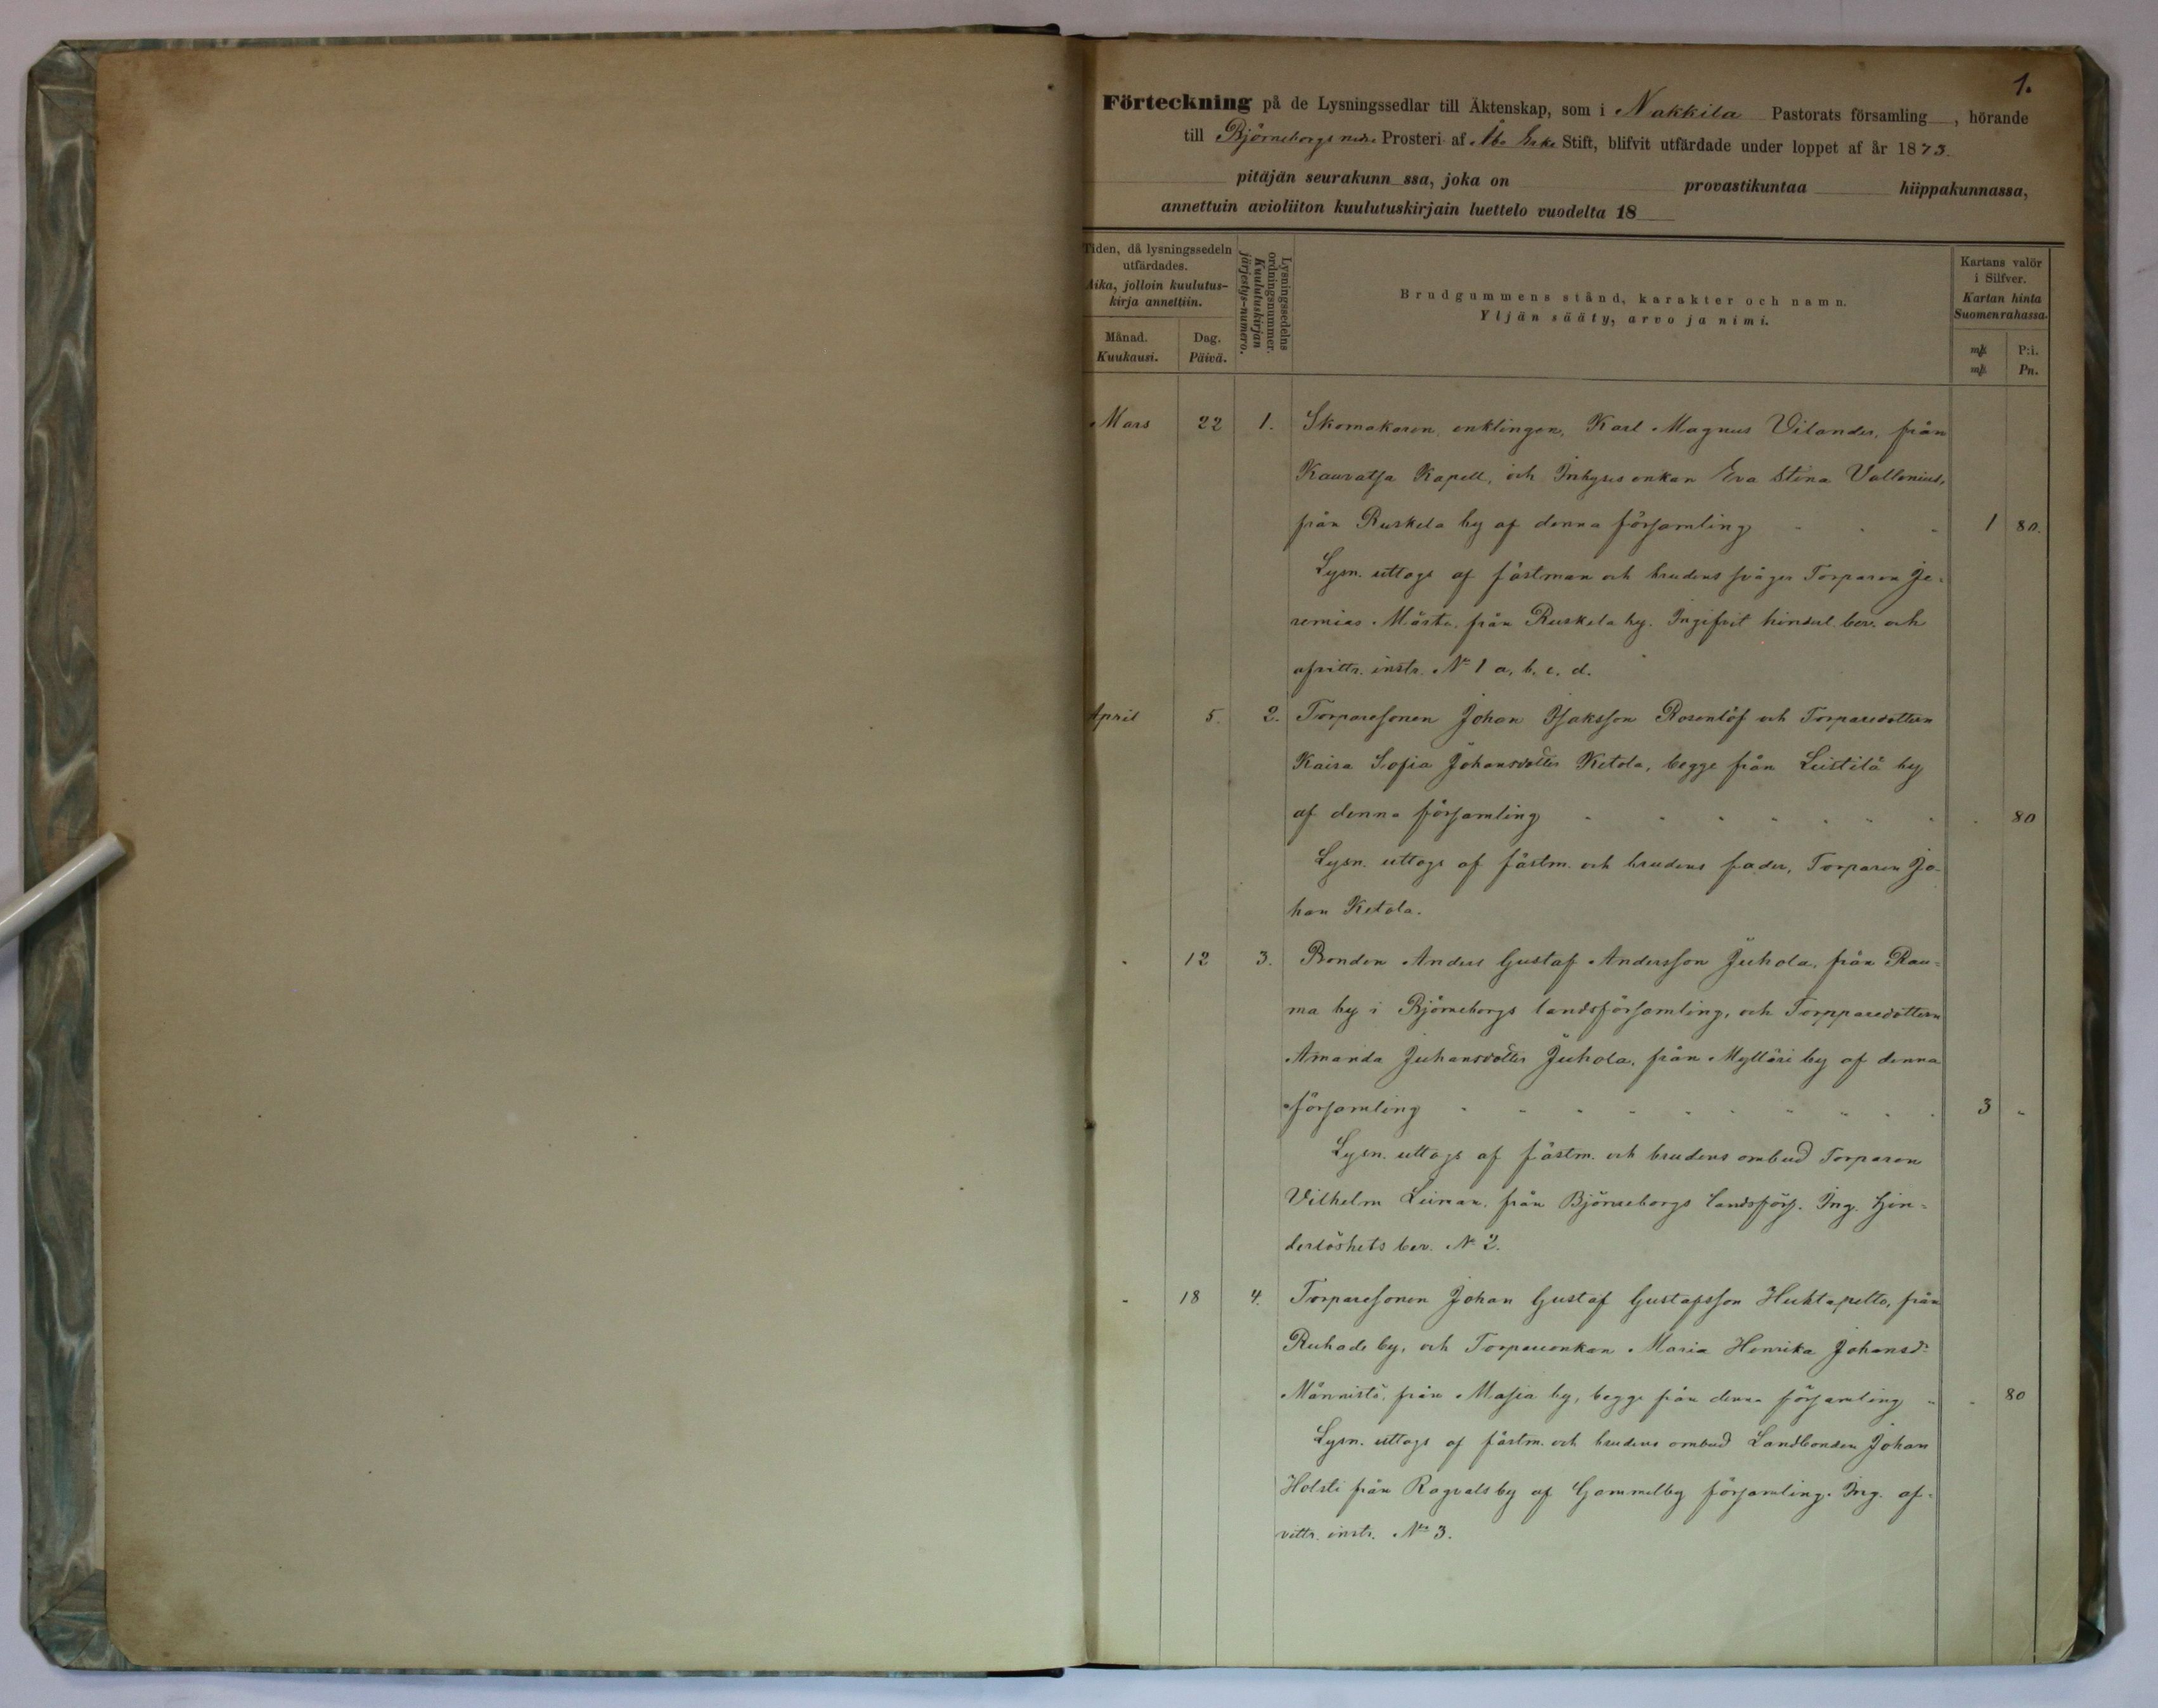 1.
Förteckning på de Lysningssedlar till Äktenskap, som i Nakkila Pastorats församling, hörande
till Björneborgs nedre Prosteri af Åbo Erke Stift, blifvit utfärdade under loppet af år 1873.
pitäjän seurakunn ssa, joka on provastikuntaa hiippakunnassa,
annettuin avioliiton kuulutuskirjain luettelo vuodelta 18
Tiden, då lysningssedeln
utfärdades.
Aika, jolloin kuulutus-
kirja annettiin.
Månad.
Kuukausi.
Dag.
Päivä.
Lysningssedelns
ordningsnummer.
Kuulutuskirjan
järjestys-numero.
Brudgummens stånd, karakter och namn.
Yljän sääty, arvo ja nimi.
Kartans valör
i Silfver.
Kartan hinta
Suomenrahassa.
mk P:i.
mk Pn.
Mars 22 1. Skomakaren enklingen, Karl Magnus Vilander, från
Kauvatsa Kapell, och Inhyses enkan Eva Stina Vallenius,
från Ruskela by af denna församling 1 80.
Lysn. uttogs af fästman och brudens svåger Torparen Je-
remias Märta, från Ruskela by. Ingifvit hindersl. bev. och
afvittr. instr. No 1 a, b, c, d.
April 5. 2. Torparesonen Johan Isaksson Rosenlöf och Torparedottern
Kaisa Sofia Johansdotter Ketola, begge från Leistilä by
af denna församling " 80
Lysn. uttogs af fästm. och brudens fader, Torparen Jo-
han Ketola.
" 12 3. Bonden Anders Gustaf Andersson Juhola, från Rau-
ma by i Björneborgs landsförsamling, och Torpparedottern
Amanda Juhansdotter Juhola, från Mylläri by af denna
församling 3 "
Lysn. uttogs af fästm. och brudens ombud Torparen
Vilhelm Leinan, från Björneborgs landsförs. Ing. hin-
derlöshets bev. No 2.
" 18 4. Torparesonen Johan Gustaf Gustafsson Huktapelto, från
Ruhade by, och Torpareenkan Maria Henrika Johansd:r
Männistö, från Masia by, begge från denna församling " 80
Lysn. uttogs af fästm. och brudens ombud Landbonden Johan
Holsti från Ragvalsby af Gammelby församling. Ing. af-
vittr. instr. No 3.